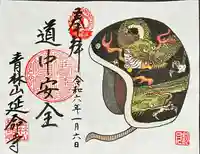 奉拝
道中安全
令和六年一月六日
青林山延命寺